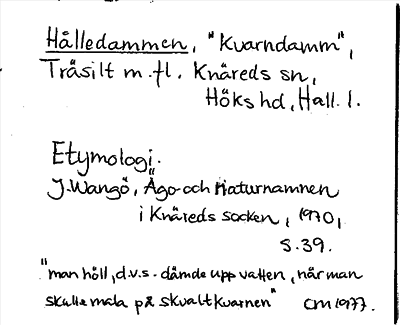 Hålledammen, "Kvarndamm",
Träsilt m.fl. Knäreds sn,
Höks hd, Hall. l.
Etymologi.
J. Wangö, Ägo- och Naturnamnen
i Knäreds socken, 1970,
s. 39.
"man höll, d.v.s. dämde upp vatten, när man
skulle mala på skvaltkvarnen" CM 1977.